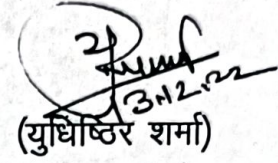 3.12.22
(युधिष्ठिर शर्मा)